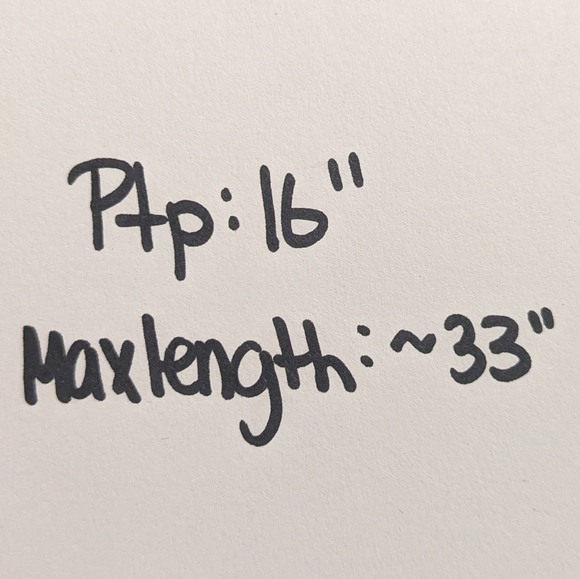 Ptp: 16"
Max length: ~33"